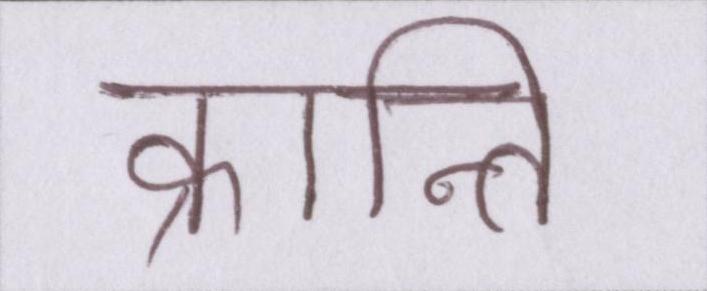 क्रान्ति